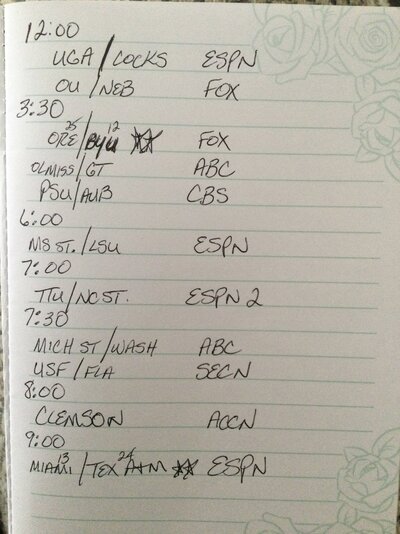 12:00
UGA / COCKS ESPN
OU / NEB FOX
3:30
ORE 25 / BYU 12 ☆☆ FOX
OLMISS / GT ABC
PSU / AUB CBS
6:00
MS ST. / LSU ESPN
7:00
TTU / NC ST. ESPN 2
7:30
MICH ST / WASH ABC
USF / FLA SECN
8:00
CLEMSON ACCN
9:00
MIAMI 13 / TEX A+M 24 ☆☆ ESPN